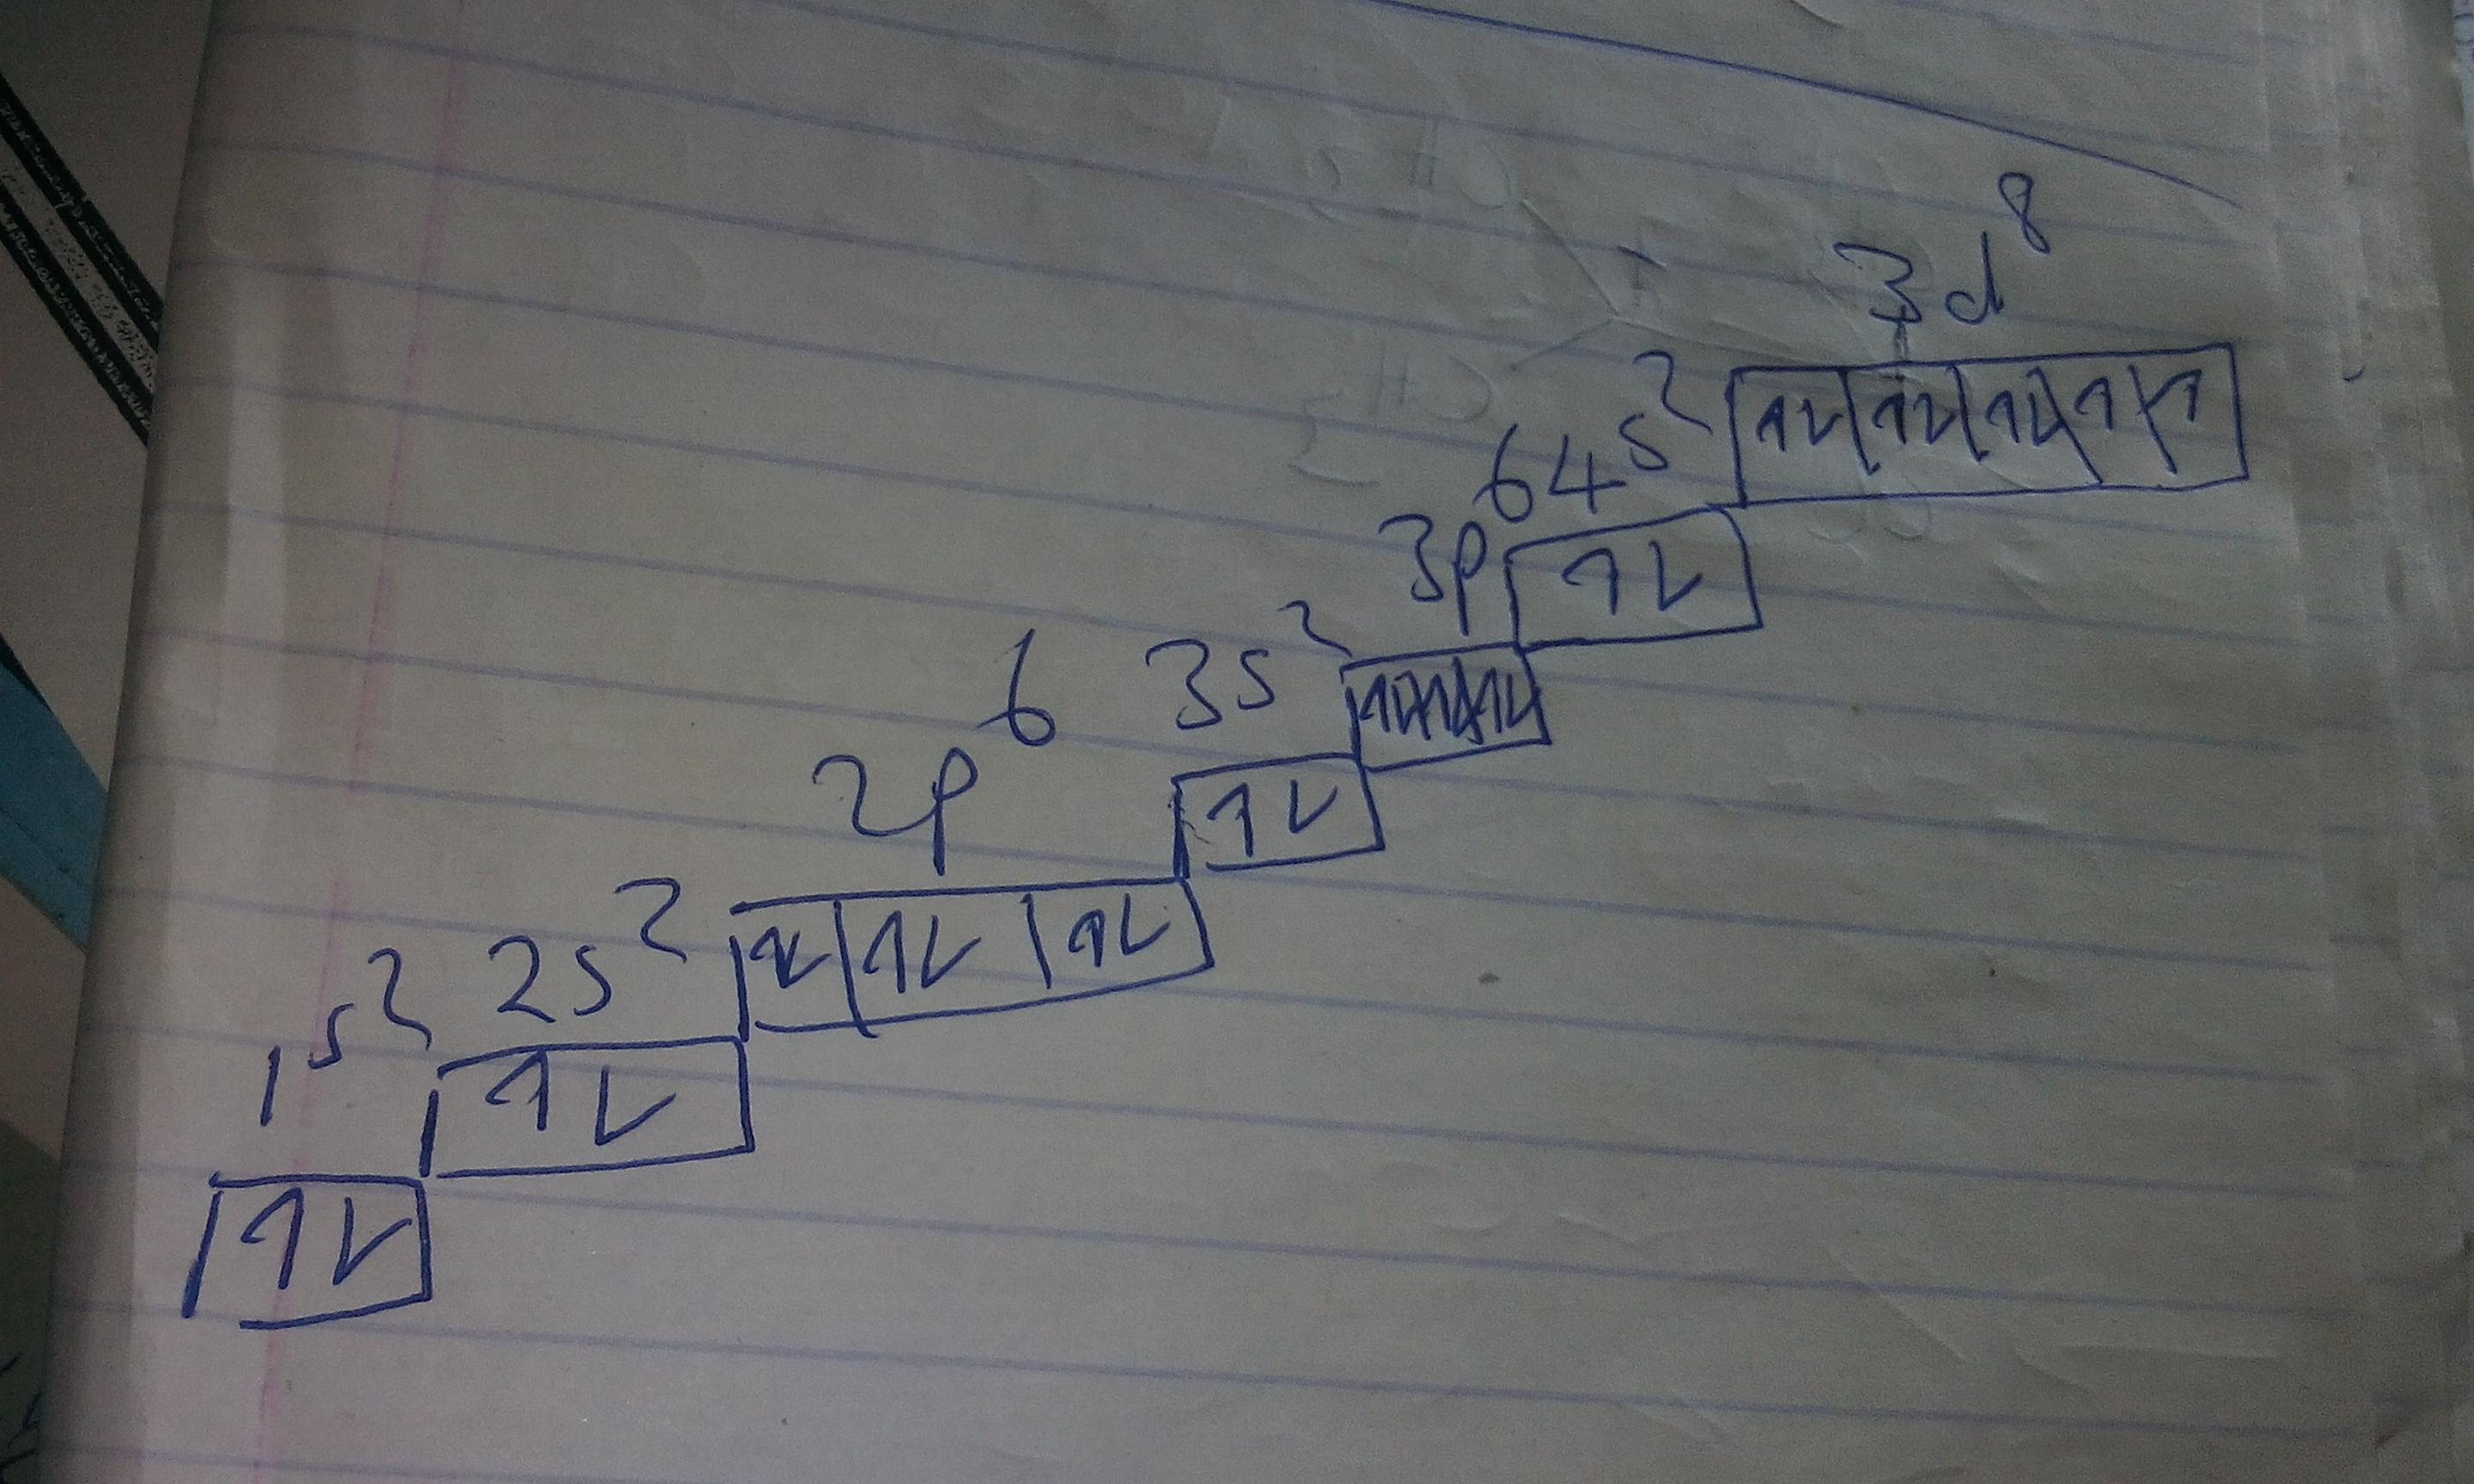 1s² 2s² 2p⁶ 3s² 3p⁶ 4s² 3d⁸